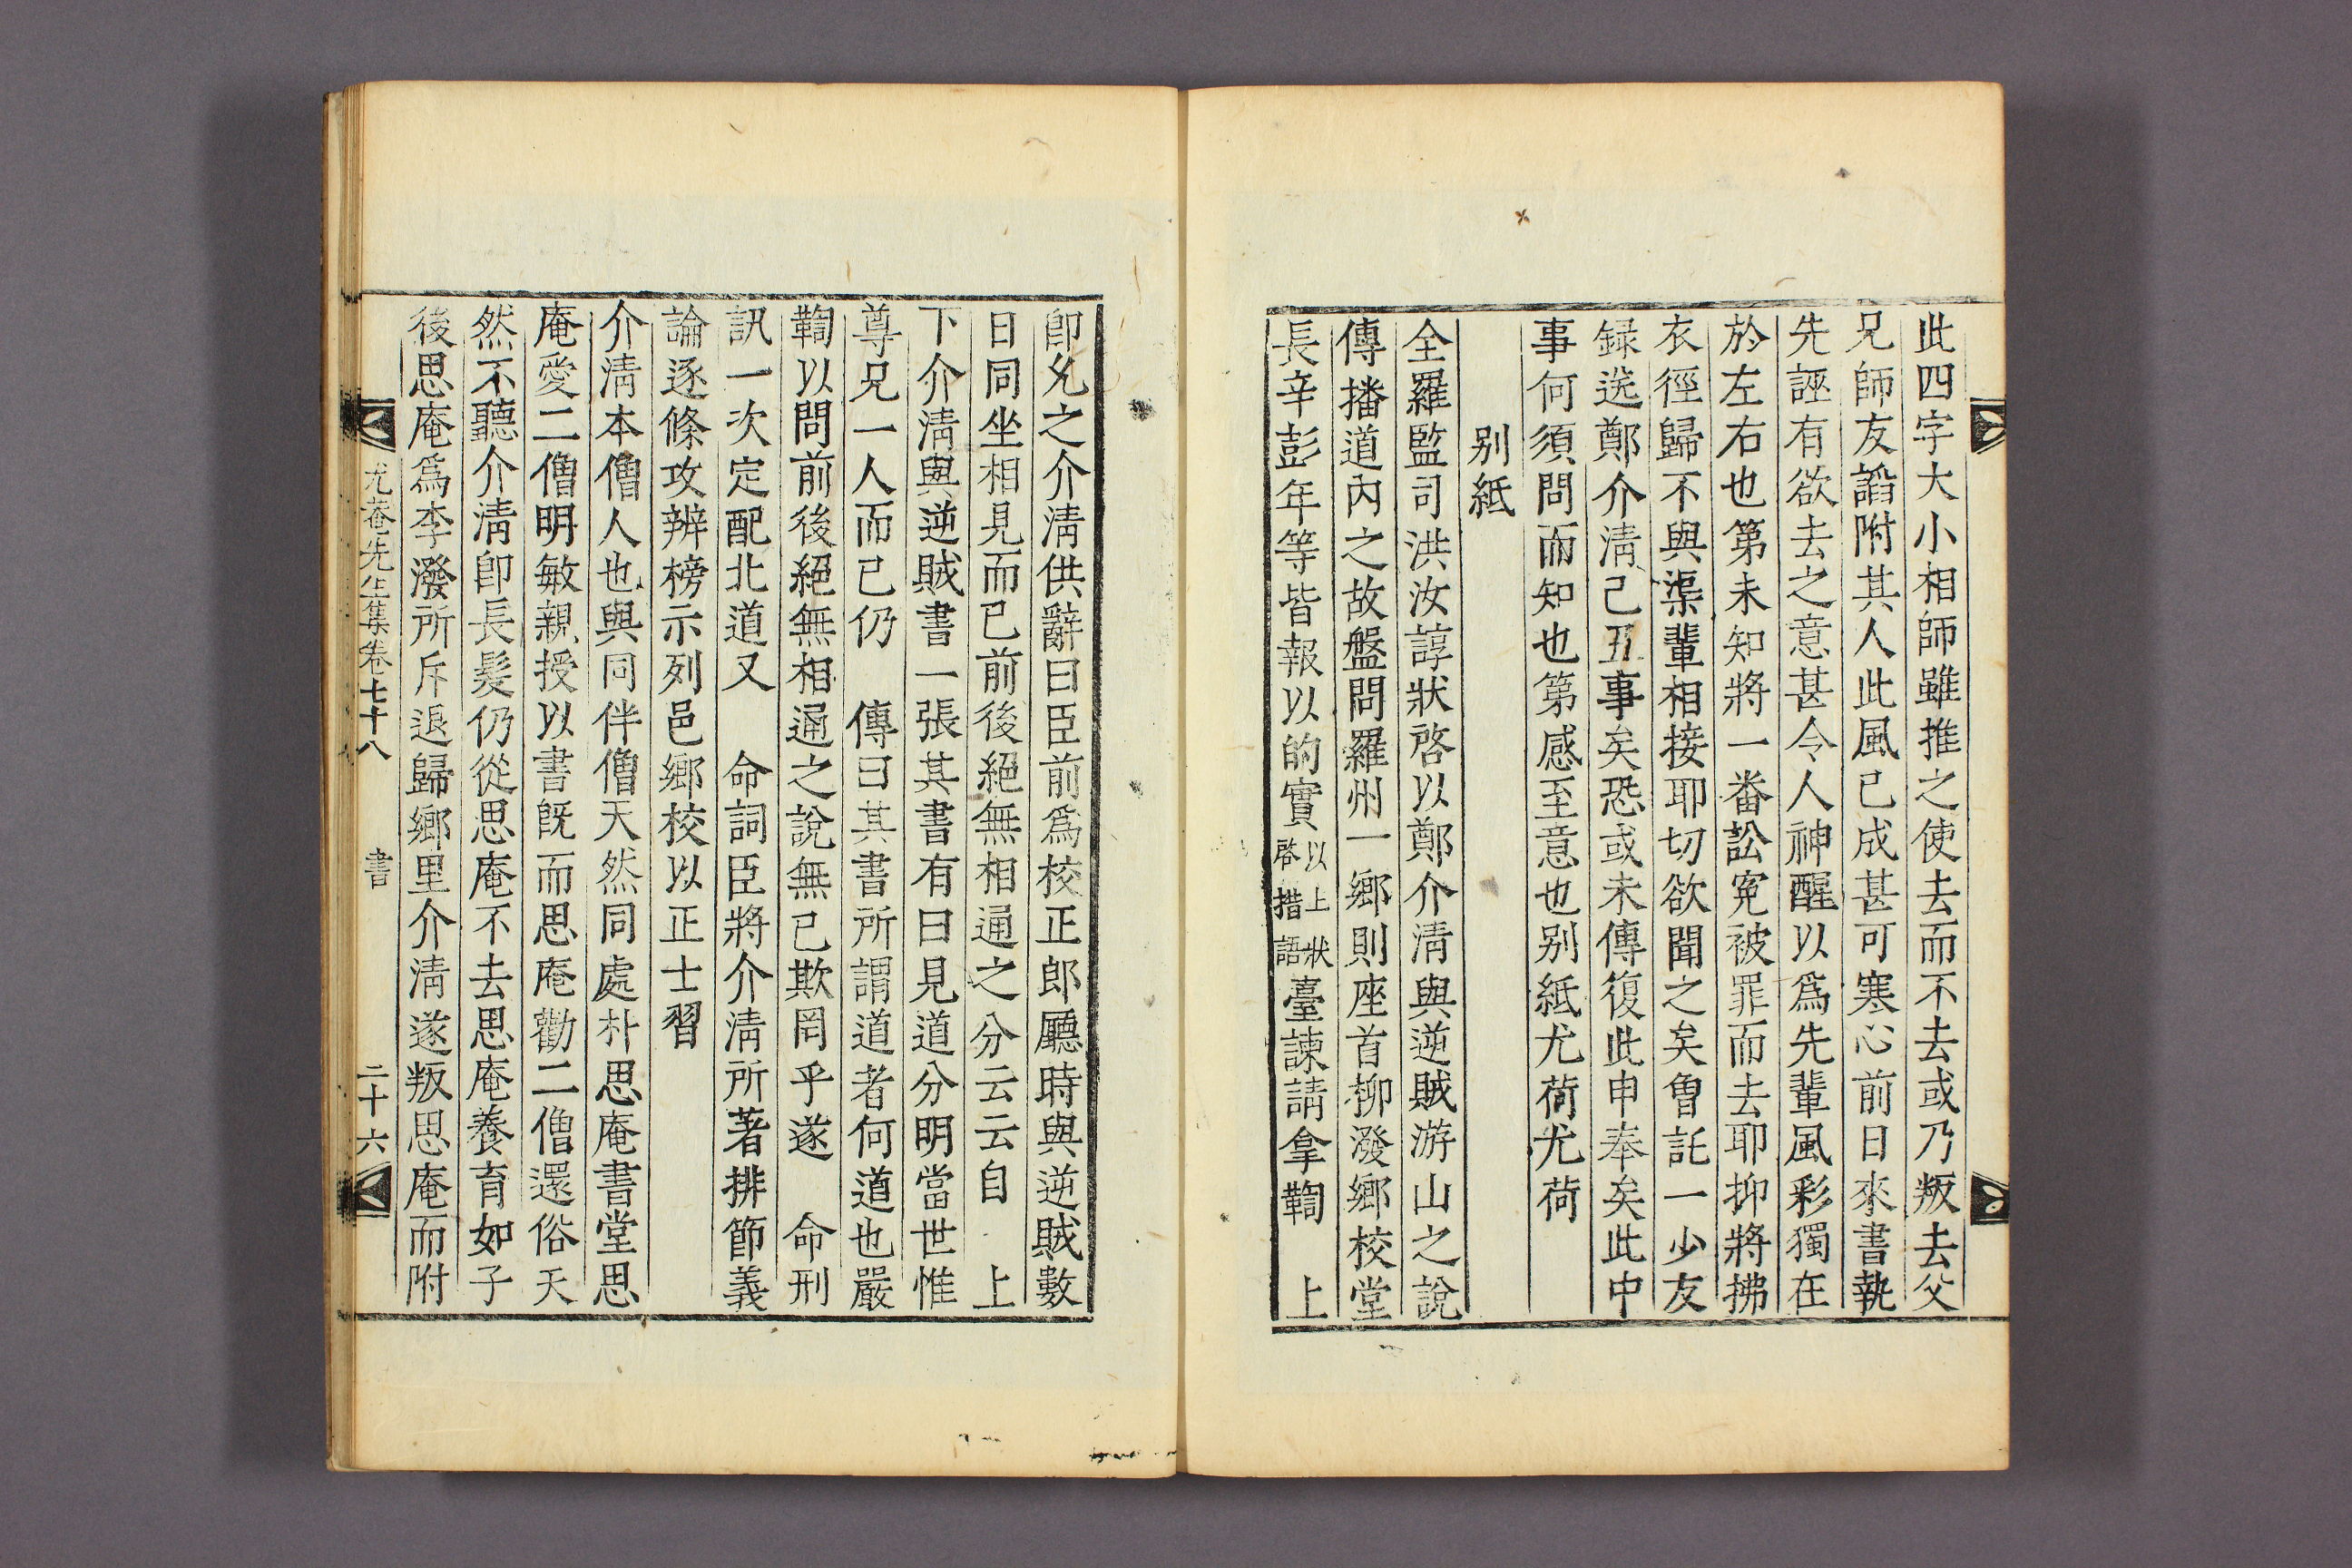 此四字大小相師雖推之使去而不去或乃叛去父
兄師友謟附其人此風已成甚可寒心前日來書執
先誣有欲去之意甚令人神醒以爲先輩風彩獨在
於左右也第未知將一番訟寃被罪而去耶抑將拂
衣徑歸不與渠輩相接耶切欲聞之矣曾託一少友
録送鄭介淸己丑事矣恐或未傳復此申奉矣此中
事何須問而知也第感至意也别紙尤荷尤荷
别紙
全羅監司洪汝諄狀啓以鄭介淸與逆賊游山之說
傳播道內之故盤問羅州一鄉則座首柳潑鄉校堂
長辛彭年等皆報以的實以上狀啓措語臺諫請拿鞫 上
卽允之介淸供辭曰臣前爲校正郎廳時與逆賊數
日同坐相見而已前後絕無相通之分云云自 上
下介淸與逆賊書一張其書有曰見道分明當世惟
尊兄一人而已仍 傳曰其書所謂道者何道也嚴
鞫以問前後絕無相通之說無已欺罔乎遂 命刑
訊一次定配北道又 命詞臣將介淸所著排節義
論逐條攻辨榜示列邑鄉校以正士習
介淸本僧人也與同伴僧天然同處朴思庵書堂思
庵愛二僧明敏親授以書旣而思庵勸二僧還俗天
然不聽介淸卽長髮仍從思庵不去思庵養育如子
後思庵爲李潑所斥退歸鄉里介淸遂叛思庵而附
尤菴先生集卷七十八 書 二十六